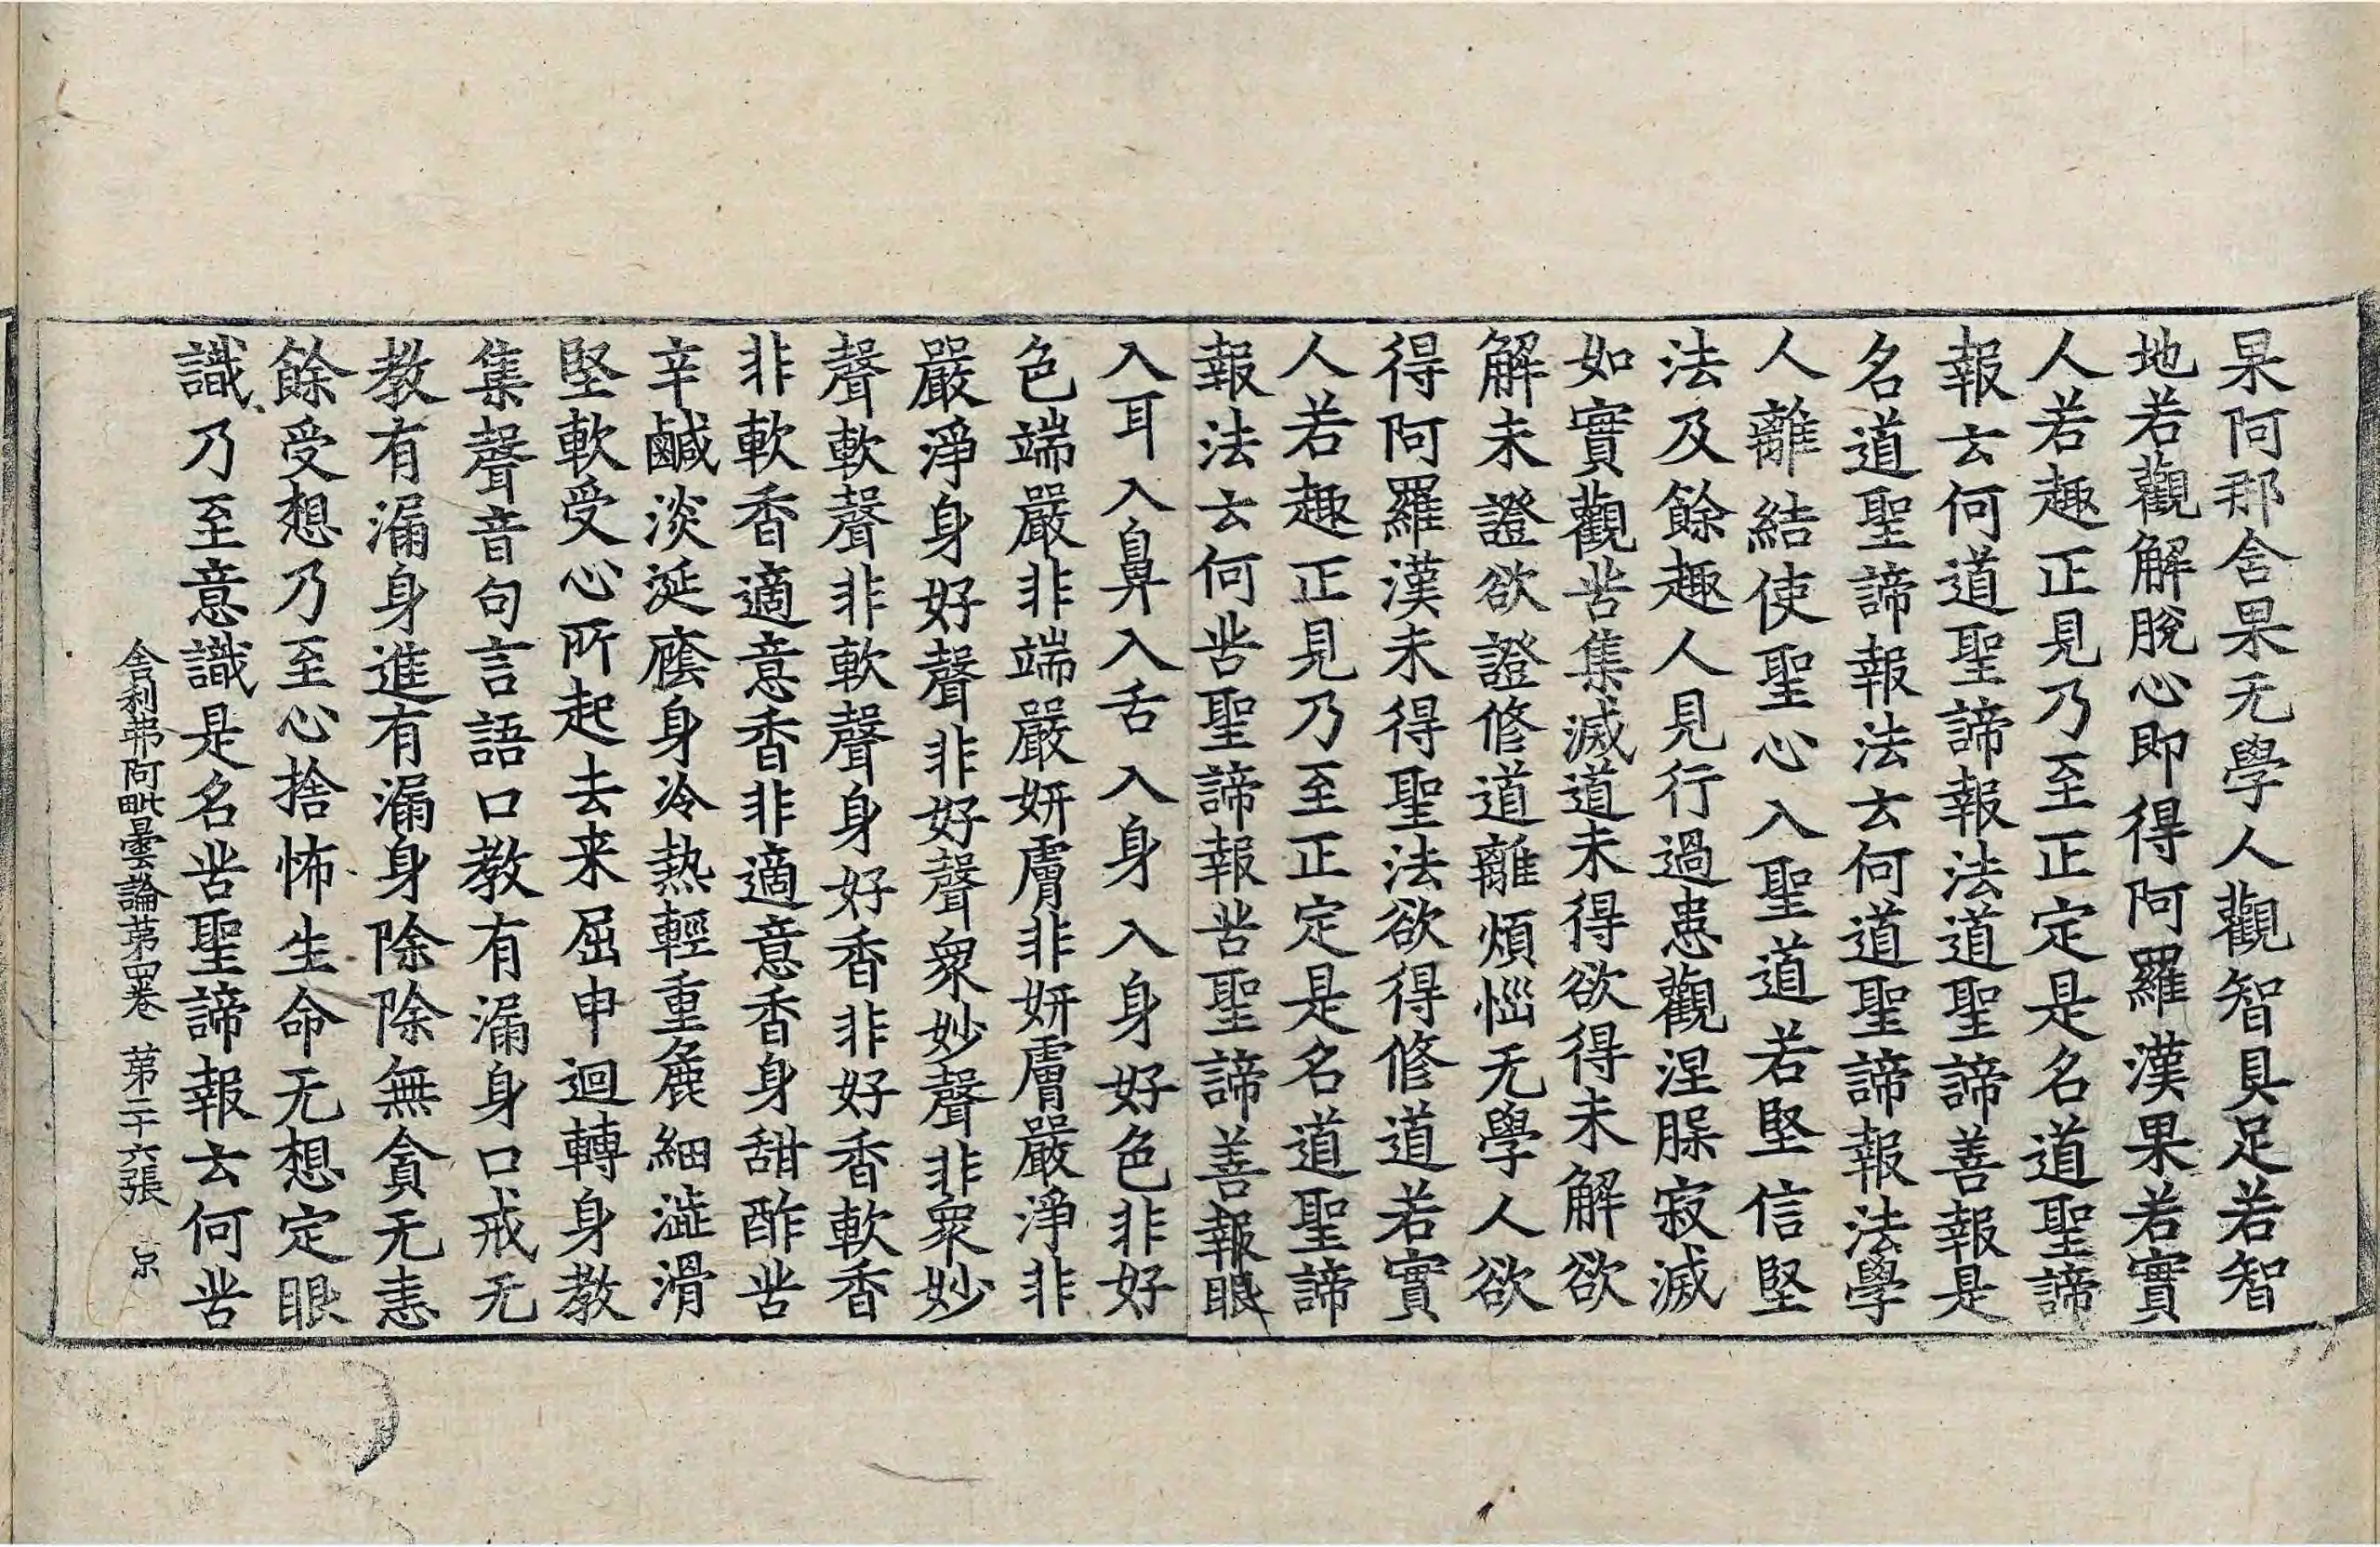 果阿那含果无學人觀智具足若智
地若觀解脫心即得阿羅漢果若實
人若趣正見乃至正定是名道聖諦
報云何道聖諦報法道聖諦善報是
名道聖諦報法云何道聖諦報法學
人離結使聖心入聖道若堅信堅
法及餘趣人見行過患觀涅槃寂滅
如實觀苦集滅道未得欲得未解欲
解未證欲證修道離煩惱无學人欲
得阿羅漢未得聖法欲得修道若實
人若趣正見乃至正定是名道聖諦
報法云何苦聖諦報苦聖諦善報眼
入耳入鼻入舌入身入身好色非好
色端嚴非端嚴妍膚非妍膚嚴淨非
嚴淨身好聲非好聲衆妙聲非衆妙
聲軟聲非軟聲身好香非好香軟香
非軟香適意香非適意香身甜酢苦
辛鹹淡涎癊身冷熱輕重麁細澁滑
堅軟受心所起去来屈申迴轉身教
集聲音句言語口教有漏身口戒无
教有漏身進有漏身除除無貪无恚
餘受想乃至心捨怖生命无想定眼
識乃至意識是名苦聖諦報云何苦
舍利弗阿毗曇論苐四卷 苐二十六張